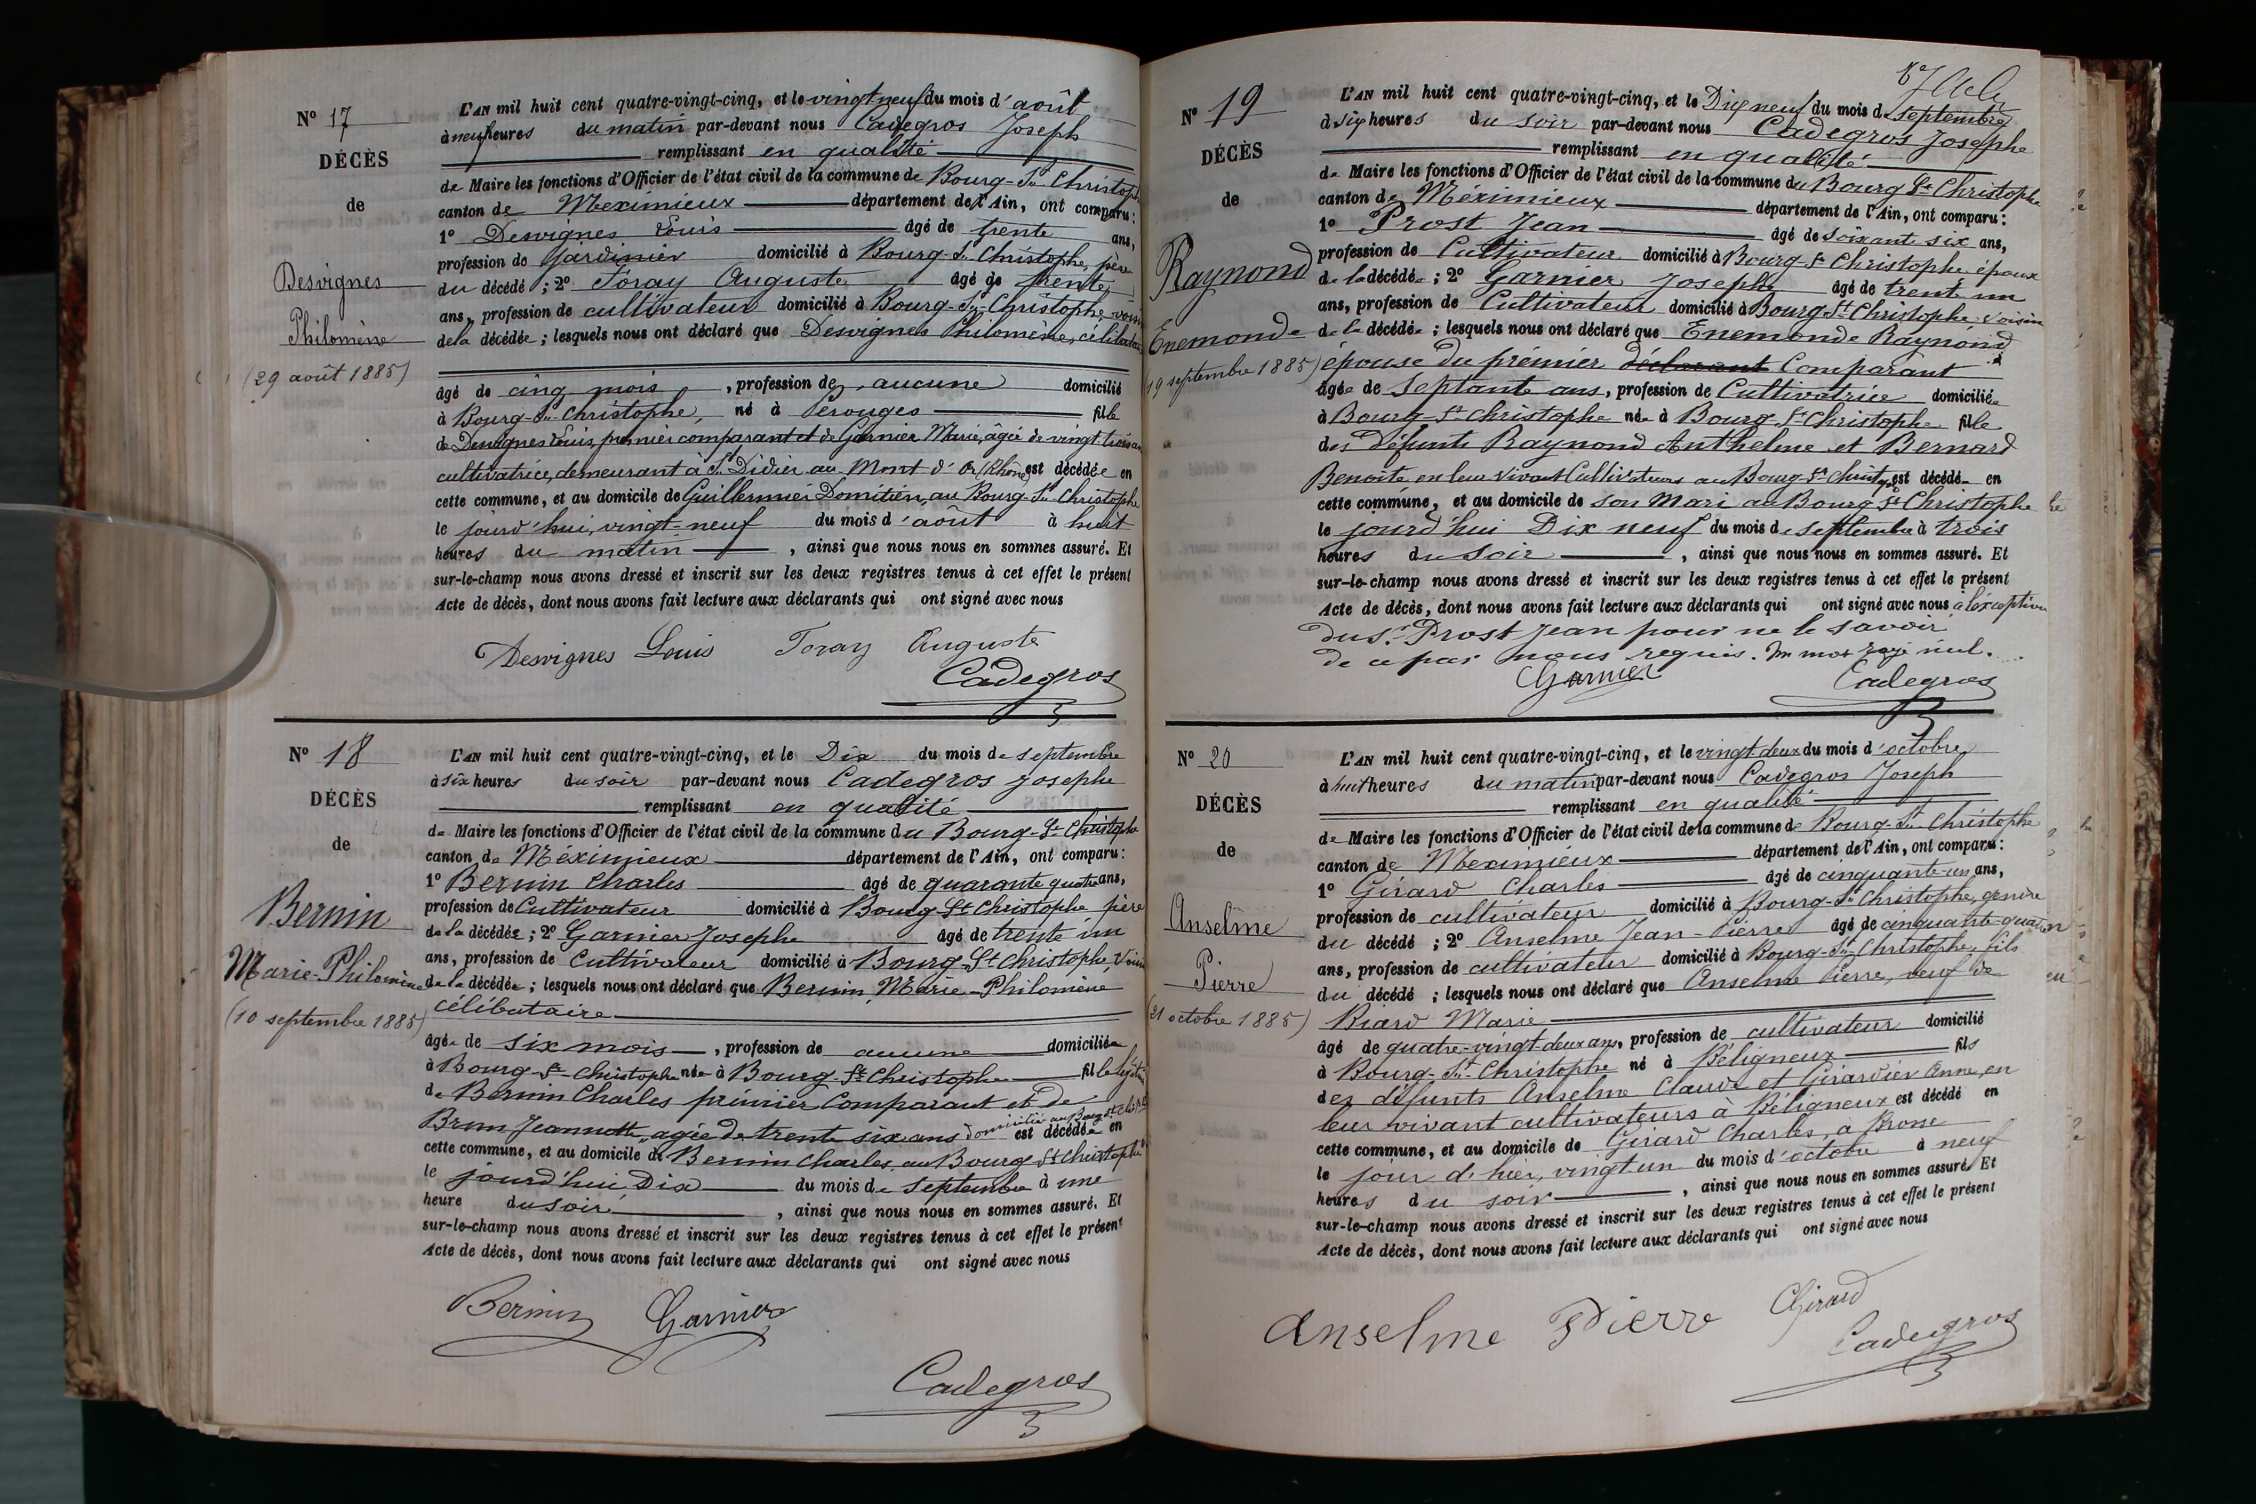 N° 17
DÉCÈS
de
Desvignes
Philomène
(29 août 1885)
L'AN mil huit cent quatre-vingt-cinq, et le vingt neuf du mois d'août
à neuf heures du matin par-devant nous Cadegros Joseph
remplissant en qualité
de Maire les fonctions d'Officier de l'état civil de la commune de Bourg-St Christophe
canton de Meximieux département de l'Ain, ont comparu:
1° Desvignes Louis âgé de trente ans,
profession de jardinier domicilié à Bourg-St Christophe, père
du décédé ; 2° Toray Auguste âgé de trente
ans, profession de cultivateur domicilié à Bourg-St-Christophe, voisin
de la décédée ; lesquels nous ont déclaré que Desvignes Philomène, célibataire
âgé de cinq mois, profession de aucune domicilié
à Bourg-St Christophe, né à Perouges fille
de Desvignes Louis, premier comparant et de Garnier Marie, âgée de vingt trois ans
cultivatrice, demeurant à St Didier au Mont d'Or (Rhône) est décédée en
cette commune, et au domicile de Guillermier Domitien, au Bourg St Christophe
le jourd'hui, vingt-neuf du mois d'août à huit
heures du matin , ainsi que nous nous en sommes assuré. Et
sur-le-champ nous avons dressé et inscrit sur les deux registres tenus à cet effet le présent
Acte de décès, dont nous avons fait lecture aux déclarants qui ont signé avec nous
Desvignes Louis Toray Auguste
Cadegros
N° 18
DÉCÈS
de
Bernin
Marie-Philomène
(10 septembre 1885)
L'AN mil huit cent quatre-vingt-cinq, et le Dix du mois de septembre
à six heures du soir par-devant nous Cadegros Josephe
remplissant en qualité
de Maire les fonctions d'Officier de l'état civil de la commune du Bourg-St Christophe
canton de Méximieux département de l'Ain, ont comparu:
1° Bernin Charles âgé de quarante quatre ans,
profession de Cultivateur domicilié à Bourg St Christophe père
de la décédée ; 2° Garnier Josephe âgé de trente un
ans, profession de Cultivateur domicilié à Bourg-St Christophe, Voisin
de la décédée ; lesquels nous ont déclaré que Bernin Marie-Philomène
célibataire
âgée de six mois, profession de aucune domiciliée
à Bourg-St-Christophe née à Bourg-St-Christophe fille légitime
de Bernin Charles premier Comparant et de
Brun Jeannette, agée de trente six ans domicilié au Bourg St Christophe est décédée en
cette commune, et au domicile de Bernin Charles, au Bourg St Christophe
le jourd'hui Dix du mois de septembre à une
heure du soir , ainsi que nous nous en sommes assuré. Et
sur-le-champ nous avons dressé et inscrit sur les deux registres tenus à cet effet le présent
Acte de décès, dont nous avons fait lecture aux déclarants qui ont signé avec nous
Bernin Garnier
Cadegros
N° 19
DÉCÈS
de
Raynond
Enemonde
(19 septembre 1885)
L'AN mil huit cent quatre-vingt-cinq, et le Dix neuf du mois de septembre
à six heures du soir par-devant nous Cadegros Josephe
remplissant en qualité
de Maire les fonctions d'Officier de l'état civil de la commune du Bourg St Christophe
canton de Méximieux département de l'Ain, ont comparu:
1° Prost Jean âgé de soixant six ans,
profession de Cultivateur domicilié à Bourg-St Christophe époux
de la décédée ; 2° Garnier Josephe âgé de trente un
ans, profession de Cultivateur domicilié à Bourg St Christophe Voisin
de la décédée ; lesquels nous ont déclaré que Enemonde Raynond
épouse du prémier déclarant Comparant
âgée de Septante ans, profession de Cultivatrice domiciliée
à Bourg-St Christophe née à Bourg St Christophe fille
des Défunts Raynond Anthelme et Bernard
Benoite en leur Vivant Cultivateurs au Bourg-St Christophe est décédée en
cette commune, et au domicile de son Mari au Bourg St Christophe
le jourd'hui Dix neuf du mois de septembre à trois
heures du soir , ainsi que nous nous en sommes assuré. Et
sur-le-champ nous avons dressé et inscrit sur les deux registres tenus à cet effet le présent
Acte de décès, dont nous avons fait lecture aux déclarants qui ont signé avec nous à l'éxception
du Sr Prost Jean pour ne le savoir
de ce par nous requis. Un mot rayé nul.
Garnier Cadegros
N° 20
DÉCÈS
de
Anselme
Pierre
(21 octobre 1885)
L'AN mil huit cent quatre-vingt-cinq, et le vingt deux du mois d'octobre
à huit heures du matin par-devant nous Cadegros Joseph
remplissant en qualité
de Maire les fonctions d'Officier de l'état civil de la commune de Bourg-St Christophe
canton de Meximieux département de l'Ain, ont comparu:
1° Girard Charles âgé de cinquante-un ans,
profession de cultivateur domicilié à Bourg-St Christophe, gendre
du décédé ; 2° Anselme Jean-Pierre âgé de cinquante-quatre
ans, profession de cultivateur domicilié à Bourg-St-Christophe, fils
du décédé ; lesquels nous ont déclaré que Anselme Pierre, veuf de
Biard Marie
âgé de quatre-vingt deux ans, profession de cultivateur domicilié
à Bourg-St-Christophe né à Béligneux fils
des défunts Anselme Claude et Girardier Anne, en
leur vivant cultivateurs à Béligneux est décédé en
cette commune, et au domicile de Girard Charles, à Brosse
le jour d'hier, vingt un du mois d'octobre à neuf
heures du soir , ainsi que nous nous en sommes assuré. Et
sur-le-champ nous avons dressé et inscrit sur les deux registres tenus à cet effet le présent
Acte de décès, dont nous avons fait lecture aux déclarants qui ont signé avec nous
Anselme Pierre Girard
Cadegros